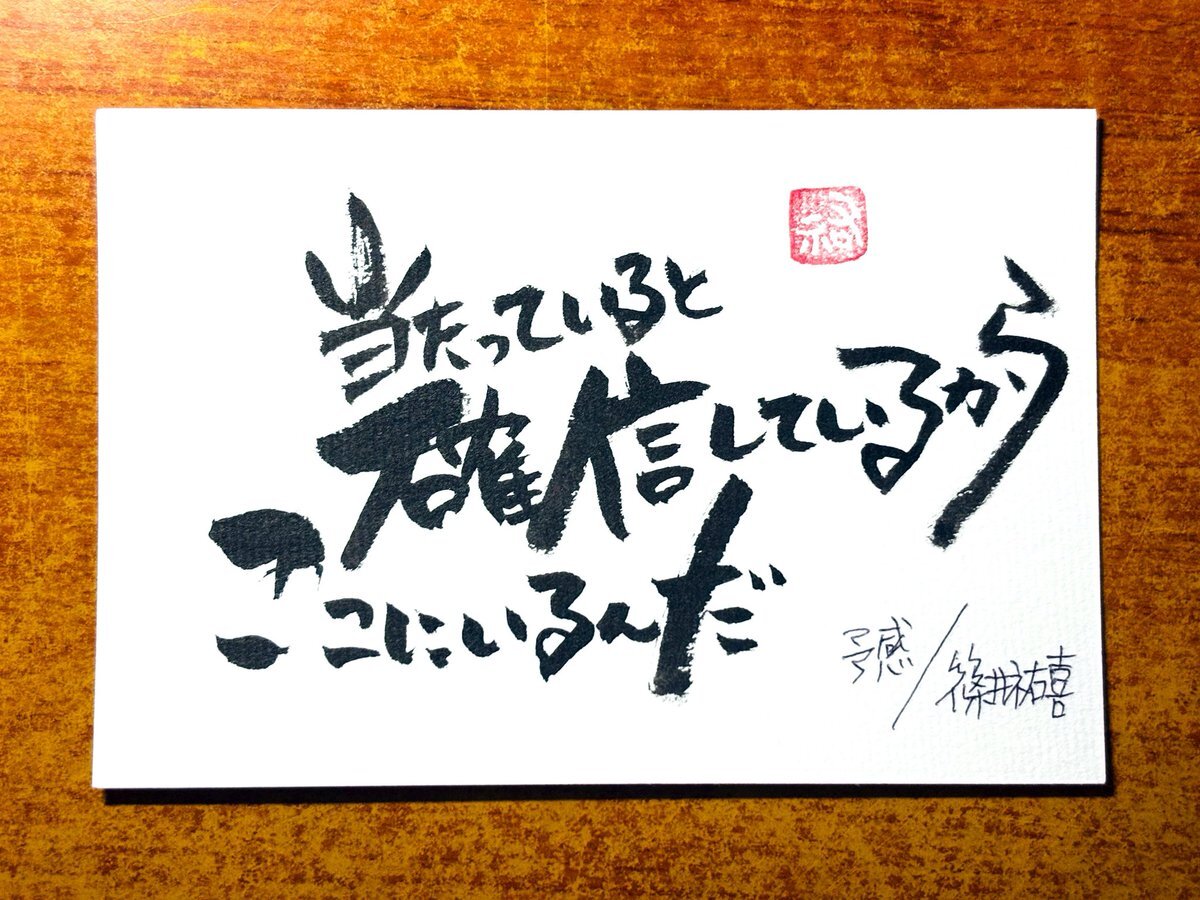 当たっていると
確信しているから
ここにいるんだ
予感/篠井祐喜